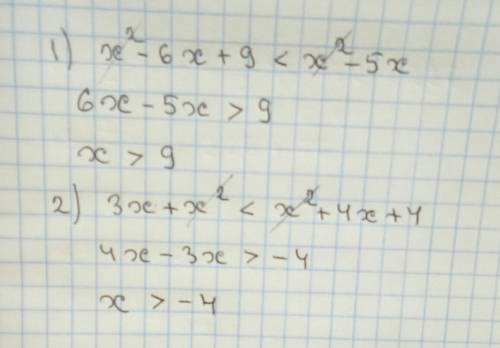 1) x² - 6x + 9 < x² - 5x
6x - 5x > 9
x > 9
2) 3x + x² < x² + 4x + 4
4x - 3x > -4
x > -4